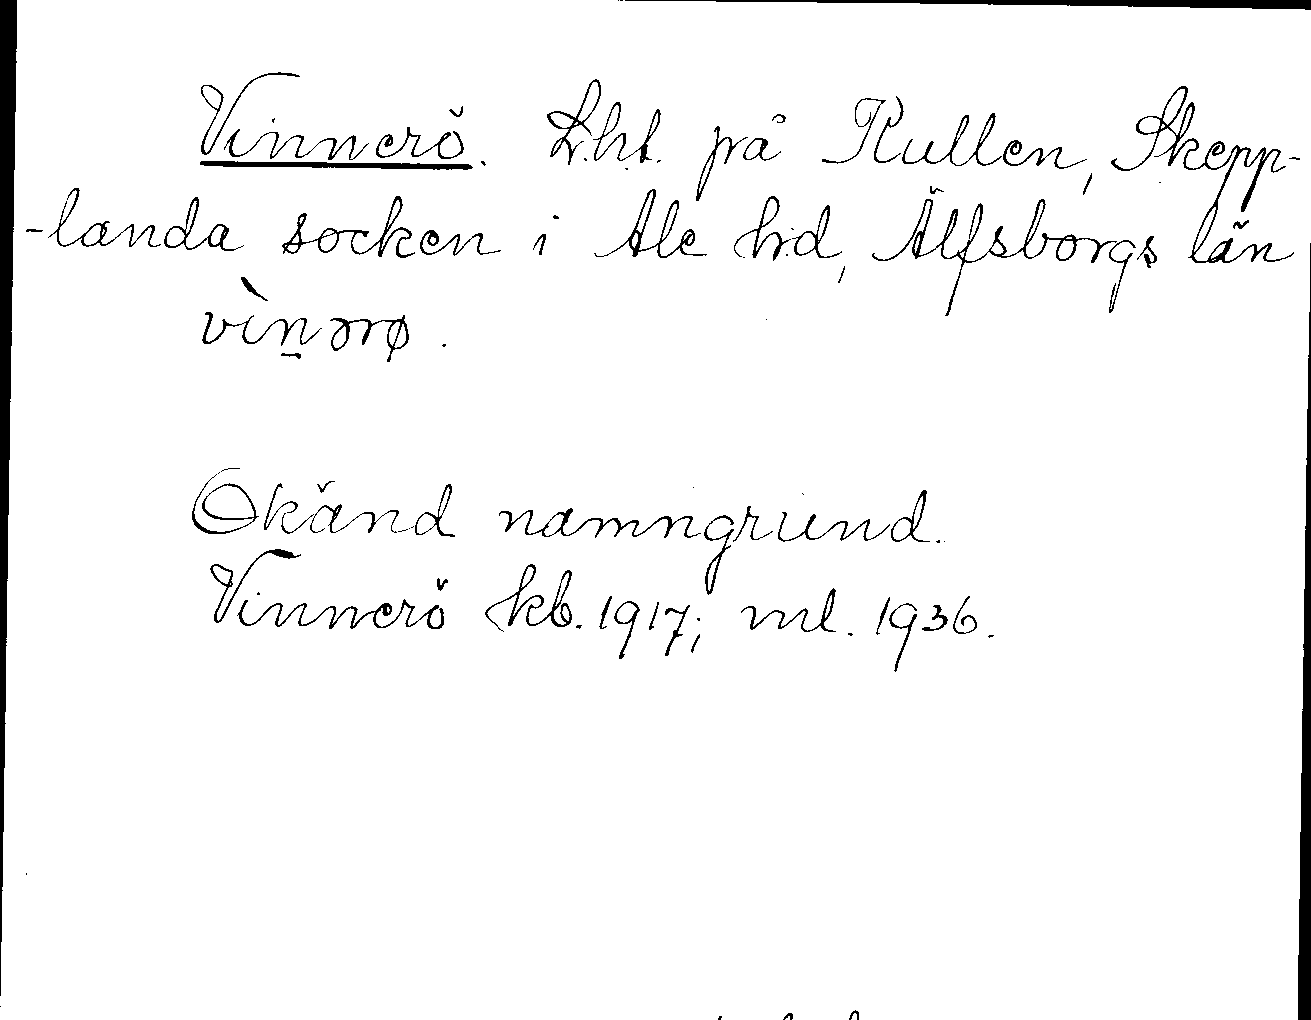 Vinnerö. L.ht. på Kullen, Skepp-
-landa socken i Ale h:d, Älfsborgs län
vìn̲ərø.
Okänd namngrund.
Vinnerö kb. 1917; ml. 1936.